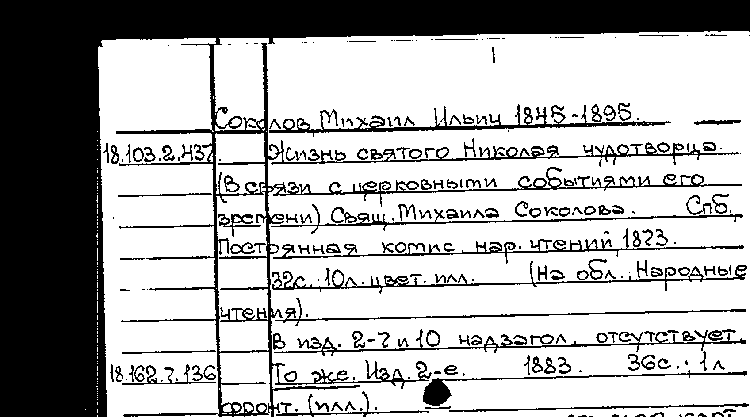 1
Соколов, Михаил Ильич 1845-1895.
18.103.2.437. Жизнь святого Николая чудотворца
(В связи с церковными событиями его
времени) Свящ. Михаила Соколова. Спб.,
Постоянная комис. нар. чтений, 1873.
32с.; 10л. цвет. илл. (На обл.: Народные
чтения).
В изд. 2-7 и 10 надзагол. отсутствует.
18.162.7.136 То же. Изд. 2-е. 1883. 36с.; 1л.
фронт. (илл.).